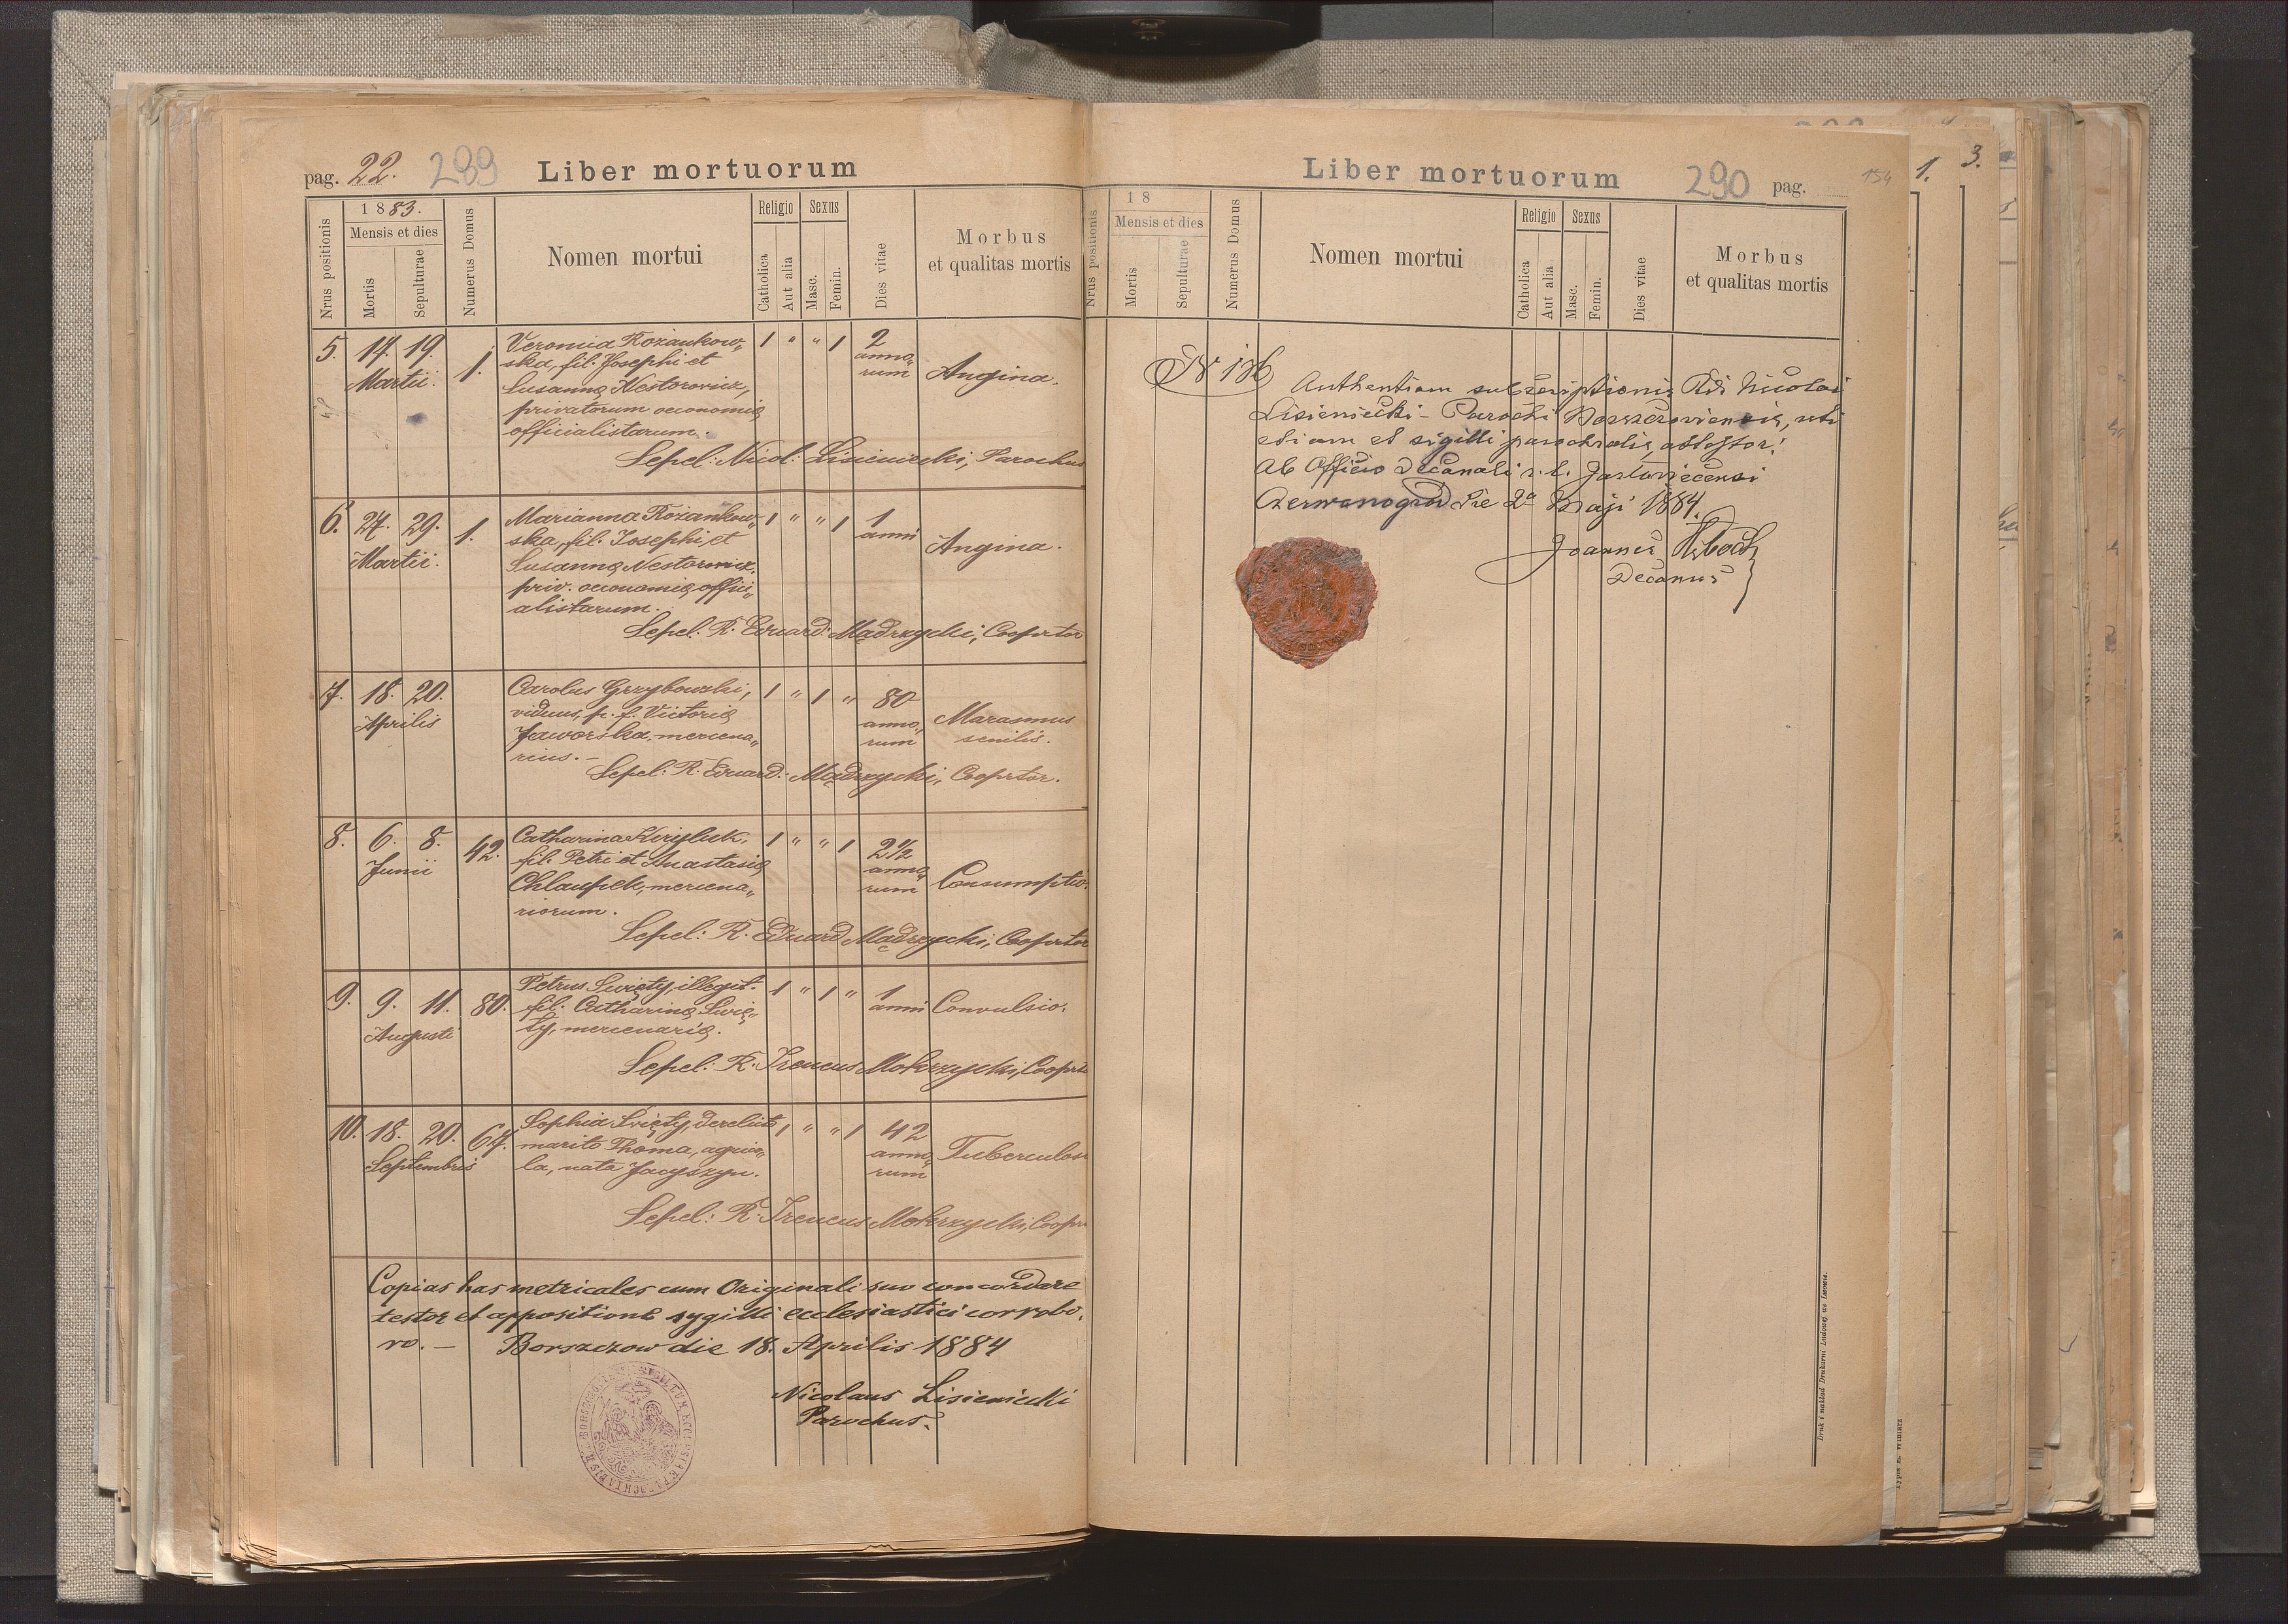 pag. 22. 289 Liber mortuorum
Nrus positionis
1883.
Mensis et dies
Mortis
Sepulturae
Numerus Domus
Nomen mortui
Religio
Catholica
Aut alia
Sexus
Masc.
Femin.
Dies vitae
Morbus
et qualitas mortis
5. 17. 19. 1. Veronica Rożankow„ 1 " " 1 2
Martii. ska, fil. Josephi et anno„
Susannę Nestorowicz, rum Angina.
privatorum oeconomię
officialistarum.
Sepel: Nicol: Lisieniecki, Parochus
6. 27. 29. 1. Marianna Rożankow„ 1 " " 1 1
Martii. ska, fil. Josephi, et anni Angina.
Susannę Nestorowicz,
priv. oeconomię offici„
alistarum.
Sepel: R. Eduard: Mądrzycki, Cooprtor
7. 18. 20. Carolus Grzybowski, 1 " 1 " 80
Aprilis viduus, p. f. Victorię anno„ Marasmus
Jaworska, mercena„ rum senilis.
rius. –
Sepel: R. Eduard: Mądrzycki, Cooprtor.
8. 6. 8. 42. Catharina Kiryluk, 1 " " 1 2½
Junii fil. Petri et Anastasię anno„
Chlaupek, mercena„ rum Consumptio.
riorum.
Sepel: R. Eduard Mądrzycki, Cooprtor
9. 9. 11. 80. Petrus Swięty, illegit. 1 " 1 " 1
Augusti fil. Catharinę Swię„ anni Convulsio.
ty, mercenarię.
Sepel: R. Ireneus Mokrzycki, Cooprt
10. 18. 20. 67. Sophia Swięty, derelicto 1 " " 1 42
Septembris marito Thoma, agrico„ anno„ Tuberculos
la, nata Jacyszyn. rum
Sepel: R. Ireneus Mokrzycki, Coopr
Copias has metricales cum Originali suo concordare
testor et appositione sygilli ecclesiastici corrobo„
ro. – Borszczow die 18. Aprilis 1884
Nicolaus Lisieniecki
Parochus.
Liber mortuorum 290 pag. 154
Nrus positionis
18
Mensis et dies
Mortis
Sepulturae
Numerus Domus
Nomen mortui
Religio
Catholica
Aut alia
Sexus
Masc.
Femin.
Dies vitae
Morbus
et qualitas mortis
N 136
Authentiam subscriptionis Rdi Nicolai
Lisieniecki – Parochi Borszczoviensis, uti
etiam et sigilli parochialis, attestor!
Ab Officio Decanali r. l. Jazlowiecensi
Czerwonogrod die 2a Maji 1884.
Joannes
Decanus
Druk i nakład Drukarni Ludowej we Lwowie.
1.
3.